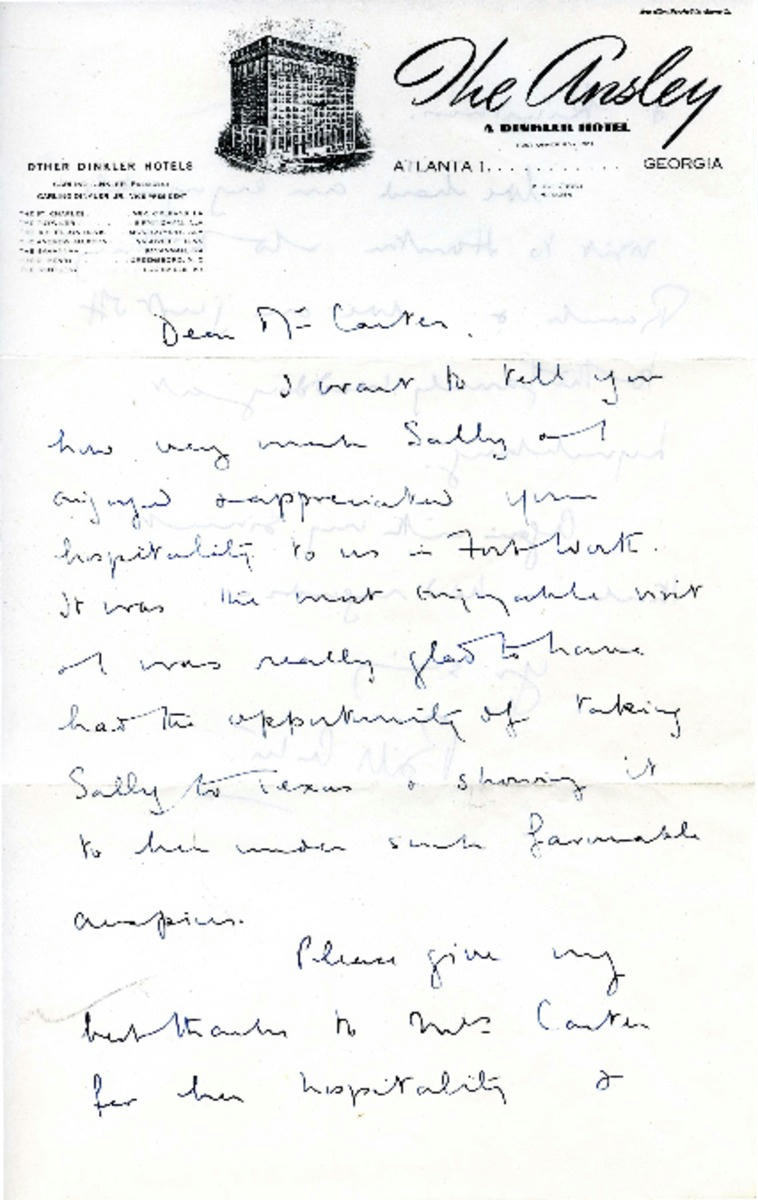 The Ansley
A DINKLER HOTEL
ATLANTA 1.......... GEORGIA
OTHER DINKLER HOTELS
CARLING DINKLER, PRESIDENT
CARLING DINKLER JR. VICE PRESIDENT
Dear Mr Carter.
I want to tell you
how very much Sally & I
enjoyed & appreciated your
hospitality to us in Fort Worth.
It was the most enjoyable visit
& I was really glad to have
had the opportunity of taking
Sally to Texas & showing it
to her under such favourable
auspices.
Please give my
best thanks to Mrs Carter
for her hospitality &